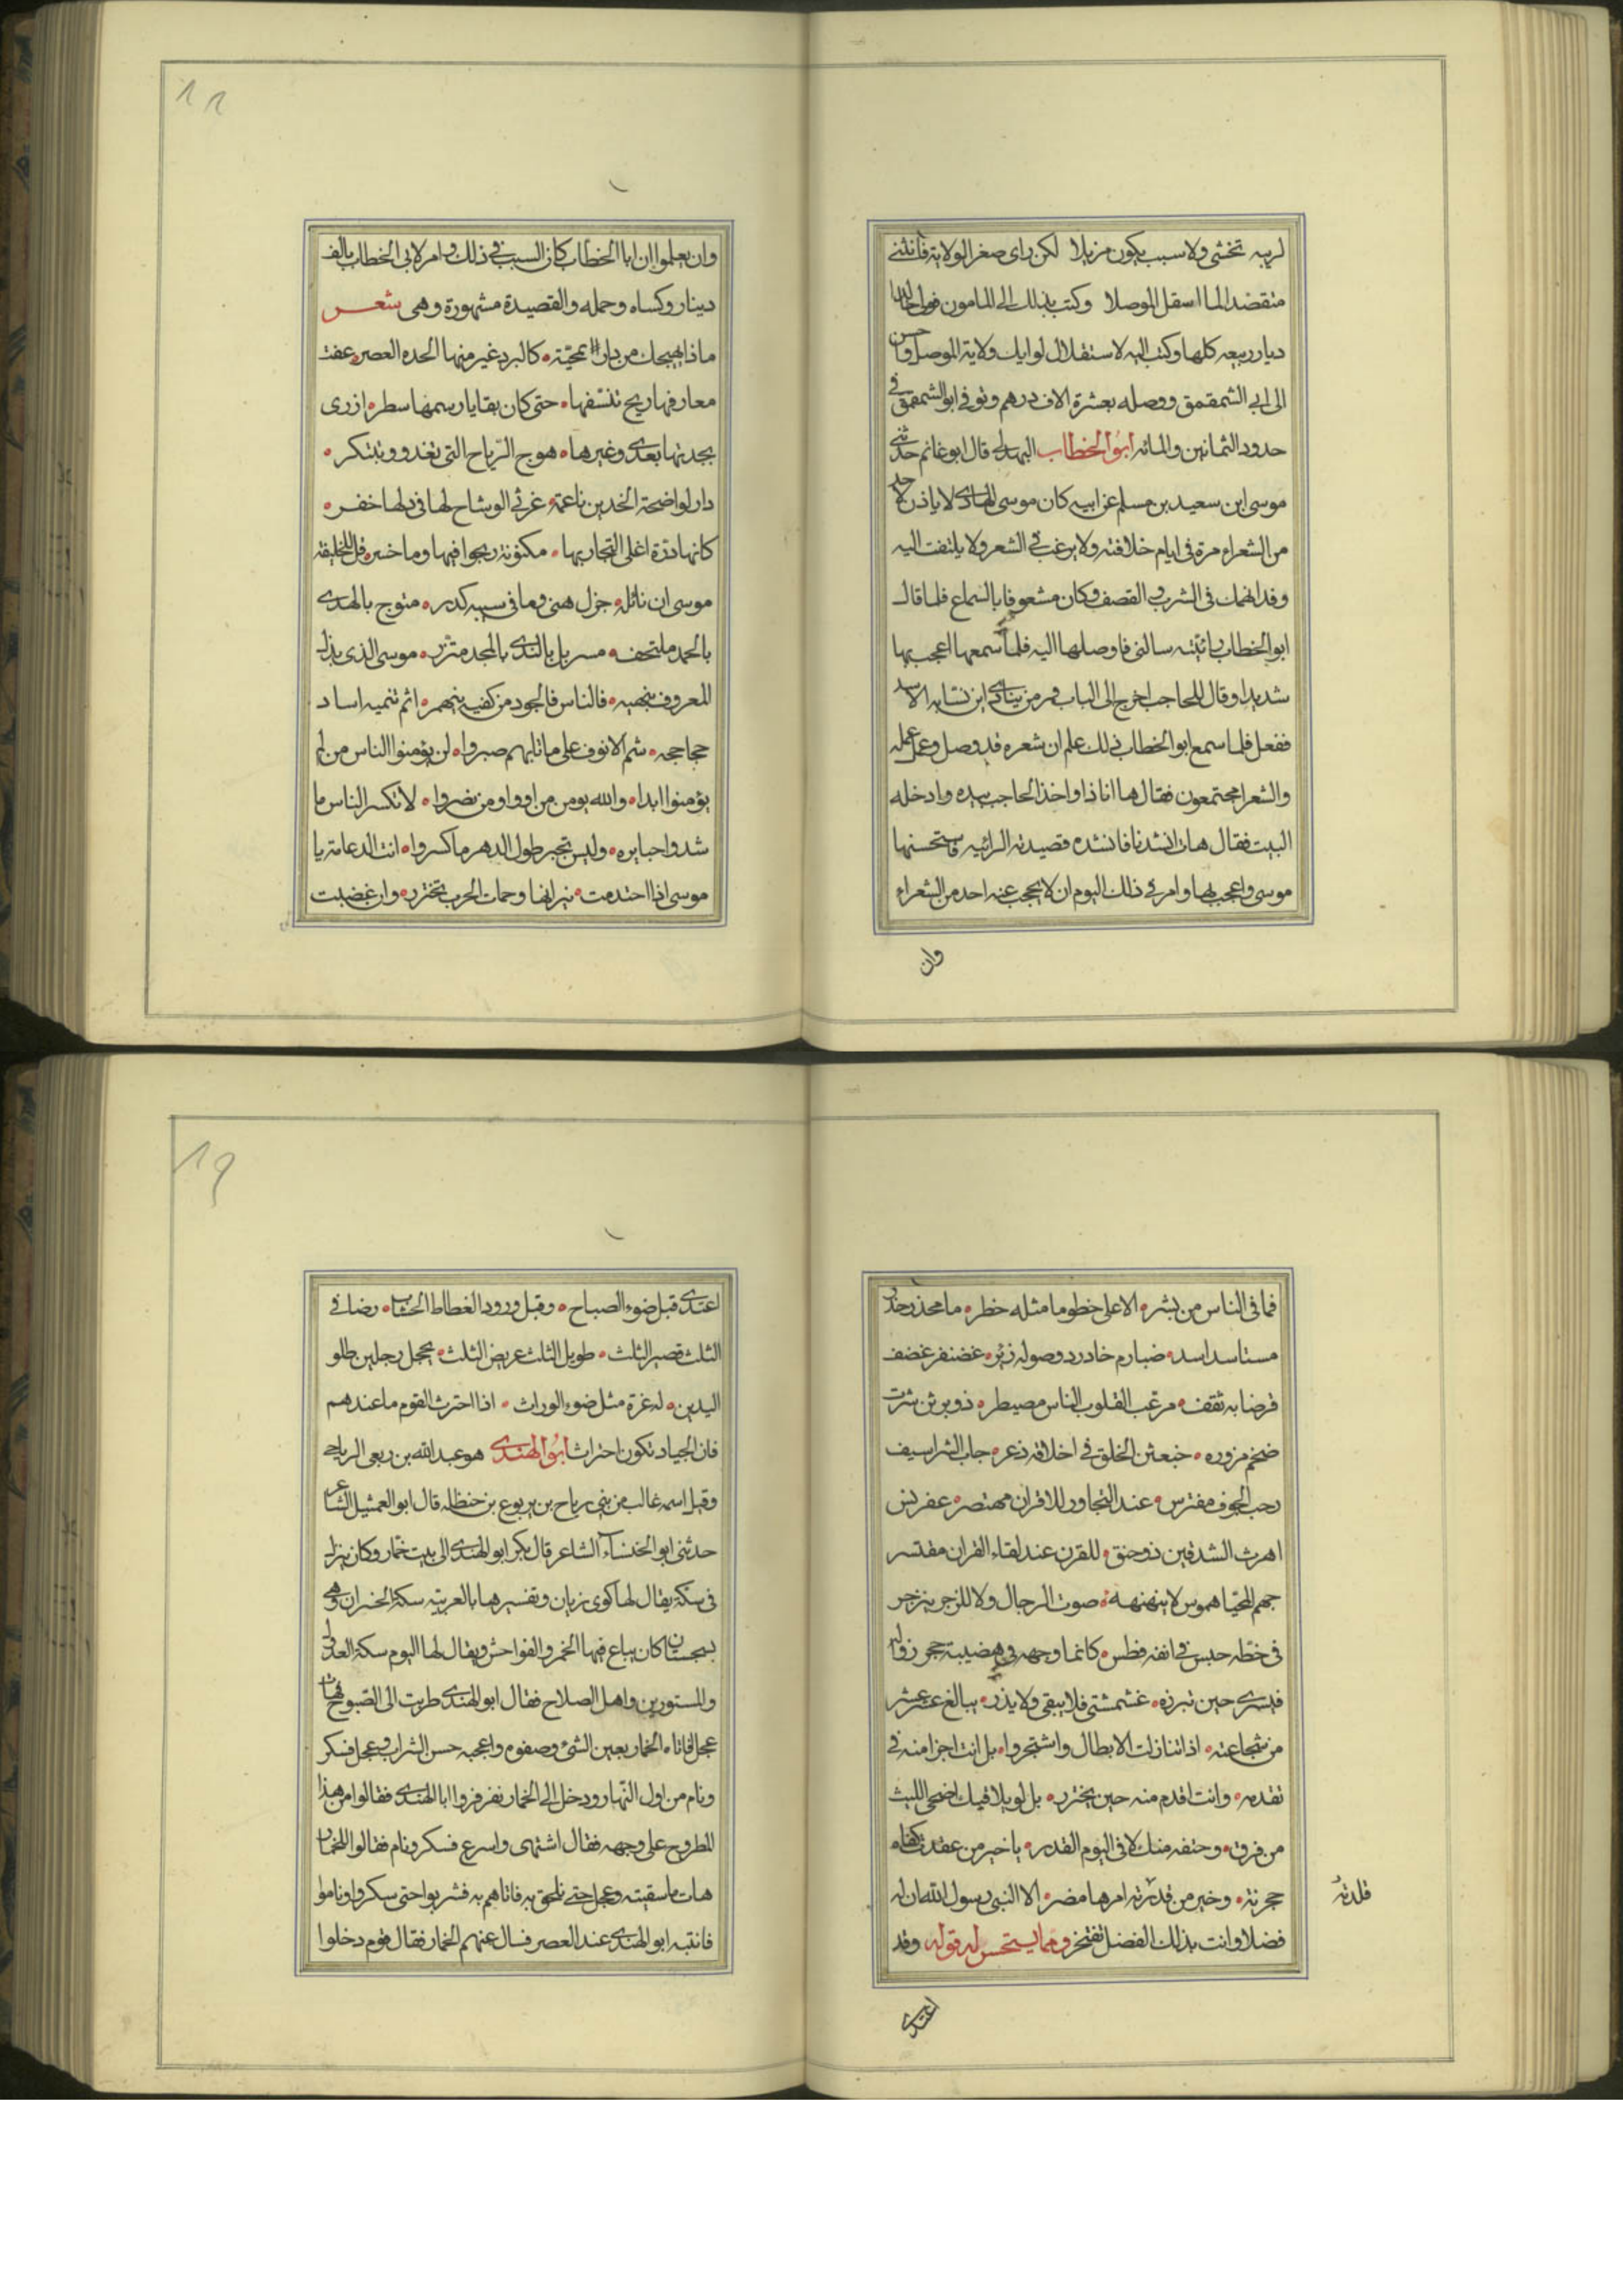 لريبه تخشى ولا سبب يكون مزيلا لكن راى صغر الولاية فانثنى
متقصدا لما استقل الموصلا وكتب بذلك الى المامون فولى خالدا
ديار ربيعه كلها وكتب اليه لاستقلال لوايك ولاية الموصل وحسن
الى ابي الشمقمق ووصله بعشرة الاف درهم وتوفي ابو الشمقمق في
حدود الثمانين والمائه ابو الخطاب البهدلى قال ابو غانم حدثنى
موسى ابن سعيد بن مسلم عن ابيه كان موسى الهادى لا ياذن لاحد
من الشعراء مرة فى ايام خلافته ولا يرغب فى الشعر ولا يلتفت اليه
وقد انهمك فى الشرب والقصف وكان مشعوفا بالسماع فلما قال
ابو الخطاب رائيته سالنى فاوصلها اليه فلما سمعها اعجب بها
شديدا وقال للحاجب اخرج الى الباب فمر من ينادى اين نسابه الاسد
ففعل فلما سمع ابو الخطاب ذلك علم ان شعره قد وصل وعمل عمله
والشعرا مجتمعون فقال ها انا ذا واخذ الحاجب بيده وادخله
البيت فقال هات انشدنا فانشده قصيدته الرائيه فاستحسنها
موسى واعجب لها وامر فى ذلك اليوم ان لا يحجب عنه احد من الشعراء
وان
١٨
وان يعلموا ان ابا الخطاب كان السبب فى ذلك وامر لابى الخطاب بالف
دينار وكساه وحمله والقصيدة مشهورة وهى شعر
ماذا يهيجك من دار بمحنية كالبرد غير منها الجده العصر عفت
معارفها ريح تنسفها حتى كان بقايا رسمها سطر ازرى
بجدتها بعدى وغيرها هوج الرياح التى تغدو وتبتكر
دار لواضحة الخدين ناعمة غرثى الوشاح لها فى دلها خفر
كانها درة اغلى التجار بها مكنونة ربحوا فيها وما خسروا قل للخليفة
موسى ان نائله جزل هنى وما فى سيبه كدر متوج بالهدى
بالحمد ملتحف مسربل بالندى بالمجد متزر موسى الذى بذل
المعروف ينهبه فالناس فالجود من كفيه ينهمر اشم تنميه اساد
حجاجحه شم الانوف على ما نابهم صبروا لن يؤمنوا الناس من لم
يؤمنوا ابدا والله يومن من اووا ومن نصروا لا تكسر الناس ما
شدوا جبايره وليس تجبر طول الدهر ما كسروا انت الدعامة يا
موسى اذا احتدمت نيرانها وحمات الحرب تختزر وان غضبت
فما فى الناس من بشر الا على خطر ما مثله خطر ما مخدر خدر
مستاسد اسد ضبارم خادر ذو صوله زئر غضنفر غضف
قرضابه ثقف مرعب القلوب الناس مصيطر ذو برثن شرث
ضخم مزوره خبعثن الخلق فى اخلاقه زعر جاب الشراسيف
رحب الجوف مفترس عند التجاور للاقران مهتصر عفرنس
اهرت الشدقين ذو حنق للقرن عند لقاء القران مقتسر
جهم المحيا هموس لا ينهنهه صوت الرجال ولا للزجر ينزجر
فى خطه خنس فى انفه فطس كانما وجهه فى هضيبة حجر
حين تبرزه غشمشتى فلا يبقى ولا يذر يبالغ عشر عشر
من شجاعته اذا تنازلت الابطال واشتجروا بل انت اجرا منه فى
تقدمه وانت اقدم منه حين يختزر بل لو يلاقيك اضحى الليث
من فرق وحتفه منك لاقى اليوم القدر يا خير من عقدت كفاه
حجزته وخير من قدرته امرها مضر الا النبى رسول الله ان له
قلدته
فضلا وانت بذلك الفضل تفتخر ومما يستحسن له قوله وقد
اغتدى
١٩
اغتدى قبل ضوء الصباح وقبل ورود الغطاط الحثاث
الثلث قصير الثلث طويل الثلث عريض الثلث يحجل رجلين طلو
اليدين له غرة مثل ضوء الوراث اذا احترث القوم ما عندهم
فان الجياد تكون احتراثا ابو الهندى هو عبد الله بن ربعى الرياحى
وقيل اسمه غالب من بنى رياح بن يربوع بن حنظله قال ابو العميثل الشاعر
حدثنى ابو الخنساء الشاعر قال بكر ابو الهندى الى بيت خمار وكان ينزل
فى سكة يقال لها كوى زيان وتفسيرها بالعربية سكة الخسران وهى
بسجستان كان يباع فيها الخمر والفواحش ويقال لها اليوم سكة العدل
والمستورين واهل الصلاح فقال ابو الهندى طربت الى الصبوح فهات
عجل فاتاه الخمار بعين الشئ وصفوه واعجبه حسن الشراب وعجل فسكر
ونام من اول النهار ودخل الى الخمار نفر فراوا ابا الهندى فقالوا من هذا
المطروح على وجهه فقال اشتهى واسرع فسكر ونام فقالوا للخمار
هات ما سقيته وعجل حتى نلحق به فاتاهم به فشربوا حتى سكروا وناموا
فانتبه ابو الهندى عند العصر فسال عنهم الخمار فقال قوم دخلوا